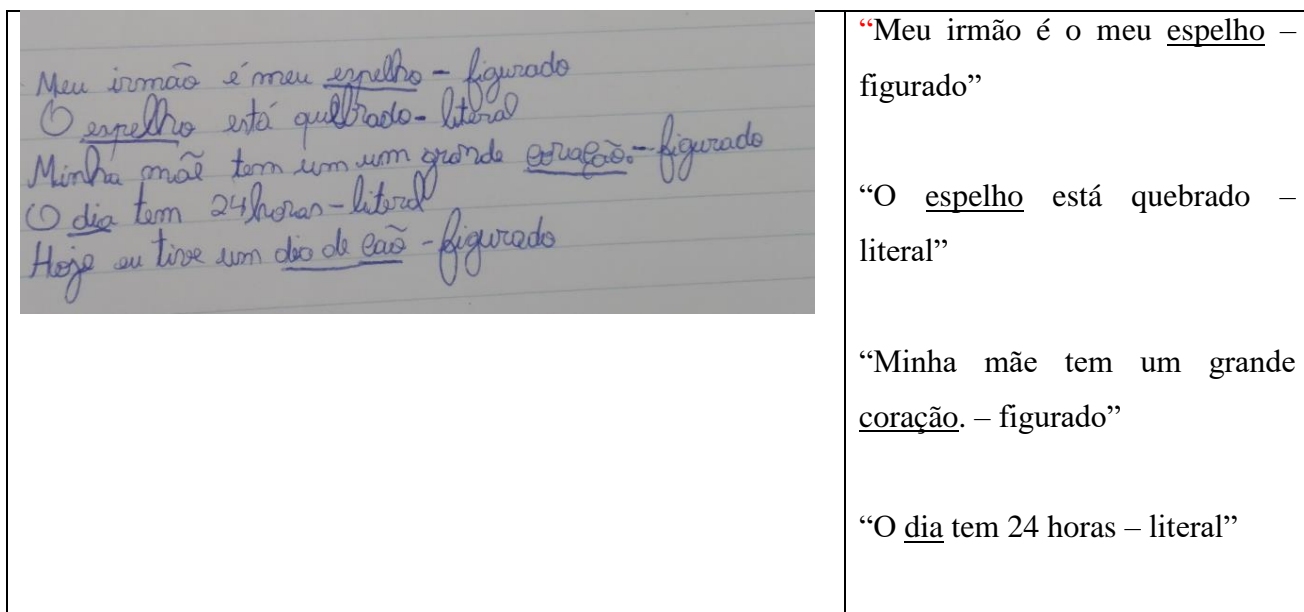 Meu irmão é meu espelho - figurado
O espelho está quebrado - literal
Minha mãe tem um um grande coração. - figurado
O dia tem 24 horas - literal
Hoje eu tive um dia de cão - figurado
“Meu irmão é o meu espelho –
figurado”
“O espelho está quebrado –
literal”
“Minha mãe tem um grande
coração. – figurado”
“O dia tem 24 horas – literal”